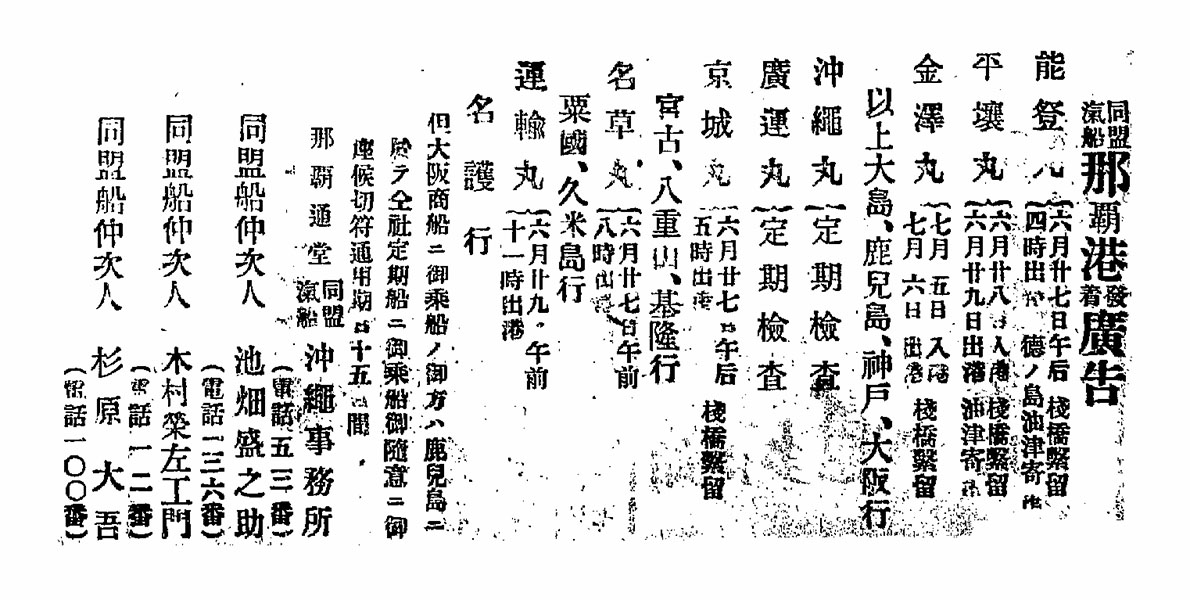 同盟汽船那覇港發着廣告
能登丸 六月廿七日午后四時出港 棧橋繋留 德ノ島油津寄港
平壤丸 六月廿八日入港 六月廿九日出港 棧橋繋留 油津寄港
金澤丸 七月五日入港 七月六日出港 棧橋繋留
以上大島、鹿兒島、神戸、大阪行
沖繩丸 定期檢査
廣運丸 定期檢査
京城丸 六月廿七日午后五時出港 棧橋繋留
宮古、八重山、基隆行
名草丸 六月廿七日午前八時出港
粟國、久米島行
運輸丸 六月廿九日午前十一時出港
名護行
但大阪商船ニ御乘船ノ御方ハ鹿兒島ニ
於テ仝社定期船ニ御乘船御隨意ニ御
座候切符通用期日十五日間
那覇通堂 同盟汽船 沖繩事務所
(電話五三番)
同盟船仲次人 池畑盛之助
(電話一三六番)
同盟船仲次人 木村榮左工門
(電話一二番)
同盟船仲次人 杉原大吾
(電話一〇〇番)